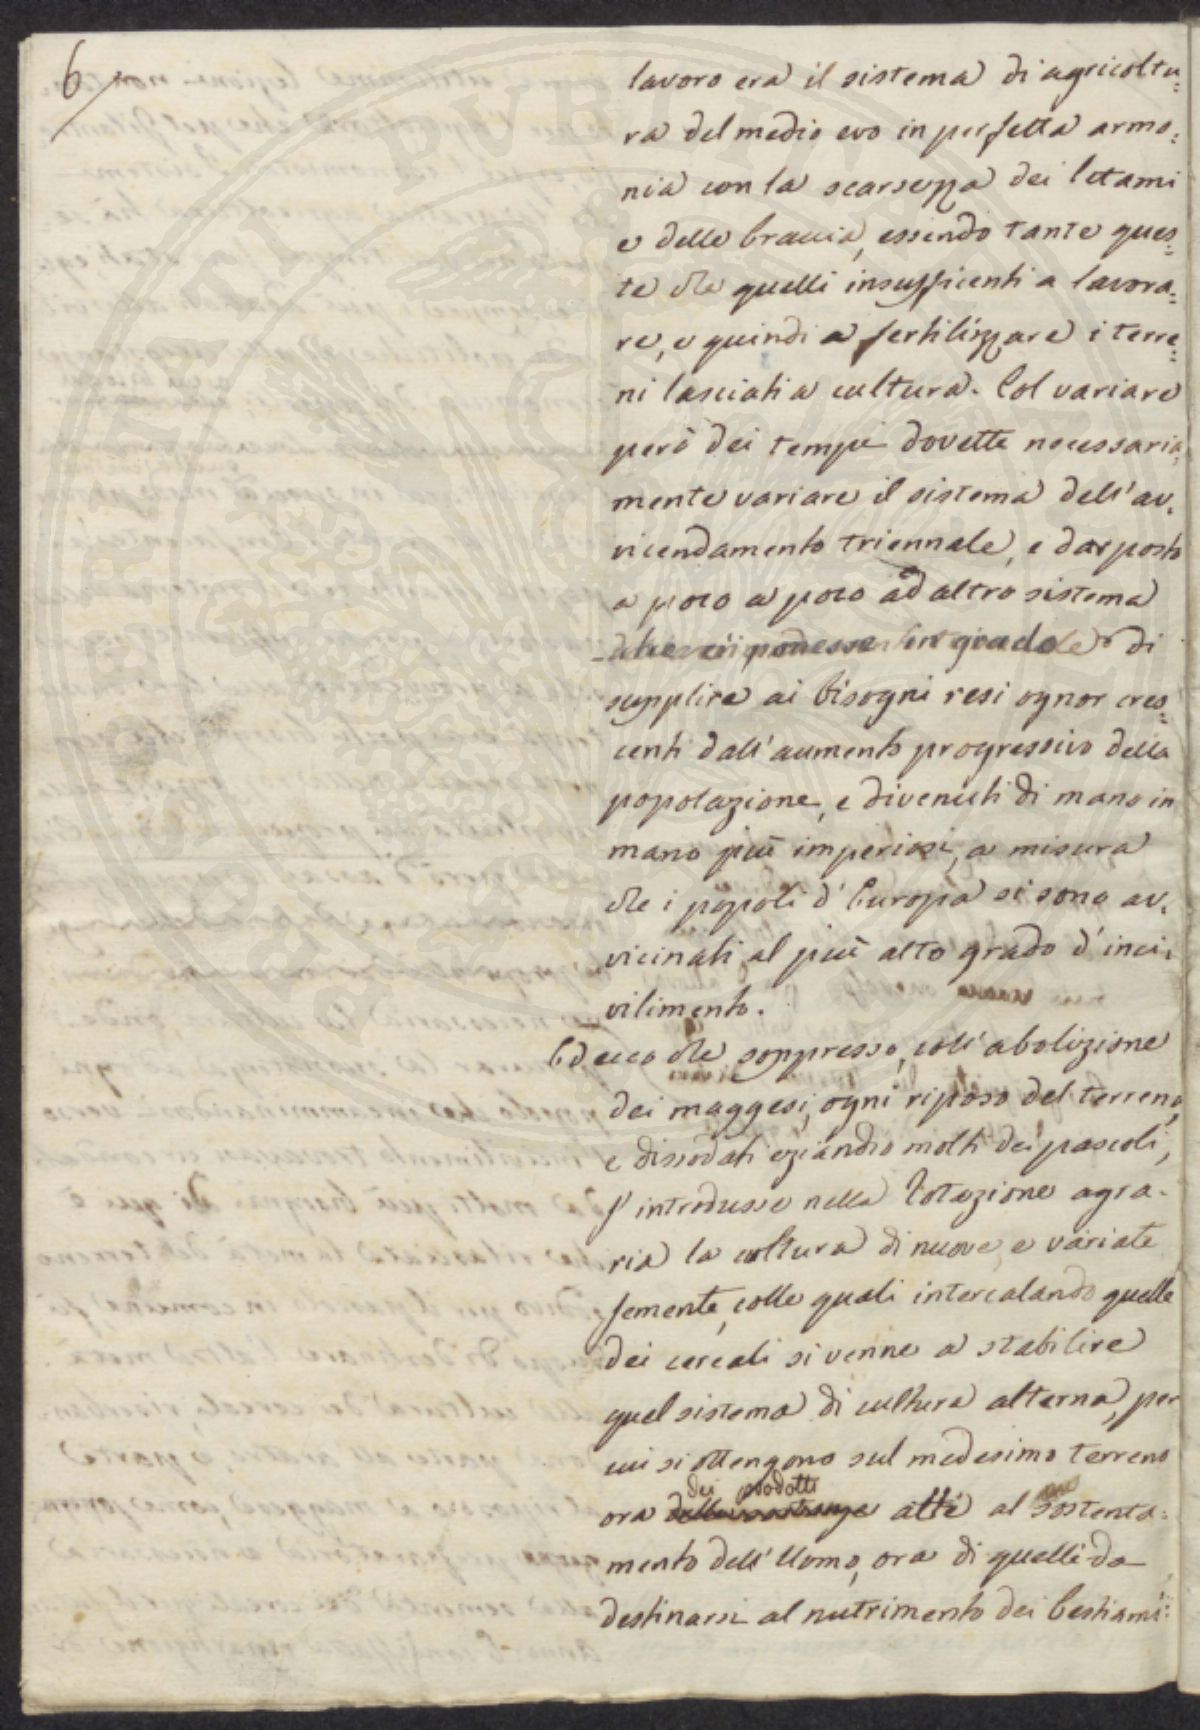 6
lavoro era il sistema di agricoltu=
ra del medio evo in perfetta armo=
nia con la scarsezza dei letami
e delle braccia, essendo tante ques=
te che quelli insufficenti a lavora=
re, e quindi a fertilizzare i terre=
ni lasciati a cultura. Col variare
però dei tempi dovette necessaria=
mente variare il sistema dell'av=
vicendamento triennale, e dar posto
a poco a poco ad altro sistema
di
supplire ai bisogni resi ognor cres=
centi dall'aumento progressivo della
popolazione, e divenuti di mano in
mano più imperiosi, a misura
che i popoli d'Europa si sono av=
vicinati al più alto grado d'inci=
vilimento.
Ed ecco che soppresso, coll'abolizione
dei maggesi, ogni riposo del terreno,
e dissodati eziandio molti dei pascoli,
s'introdusse nella rotazione agra=
ria la coltura di nuove, e variate
semente, colle quali intercalando quelle
dei cereali si venne a stabilire
quel sistema di cultura alterna, per
cui si ottengono sul medesimo terreno
dei prodotti
ora atti al sostenta=
mento dell'Uomo, ora di quelli da
destinarsi al nutrimento dei bestiami: